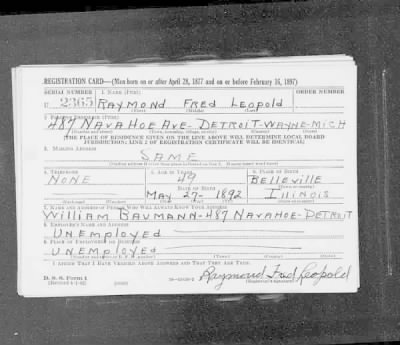 REGISTRATION CARD—(Men born on or after April 28, 1877 and on or before February 16, 1897)
SERIAL NUMBER 1. NAME (Print) ORDER NUMBER
U 2365 RAYMOND FRED LEOPOLD
(First) (Middle) (Last)
2. PLACE OF RESIDENCE (Print)
487 NAVAHOE AVE-DETROIT-WAYNE-MICH
(Number and street) (Town, township, village, or city) (County) (State)
[THE PLACE OF RESIDENCE GIVEN ON THE LINE ABOVE WILL DETERMINE LOCAL BOARD
JURISDICTION; LINE 2 OF REGISTRATION CERTIFICATE WILL BE IDENTICAL]
3. MAILING ADDRESS
SAME
4. TELEPHONE 5. AGE IN YEARS 6. PLACE OF BIRTH
NONE 49 BELLEVILLE
DATE OF BIRTH (Town or county)
MAY 27- 1892 ILLINOIS
(Exchange) (Number) (Mo.) (Day) (Yr.) (State or country)
7. NAME AND ADDRESS OF PERSON WHO WILL ALWAYS KNOW YOUR ADDRESS
WILLIAM BAUMANN-487 NAVAHOE-DETROIT
8. EMPLOYER'S NAME AND ADDRESS
UNEMPLOYED
9. PLACE OF EMPLOYMENT OR BUSINESS
UNEMPLOYED
(Number and street or R. F. D. number) (Town) (County) (State)
I AFFIRM THAT I HAVE VERIFIED ABOVE ANSWERS AND THAT THEY ARE TRUE.
D. S. S. Form 1 Raymond Fred Leopold
(Registrant's signature)